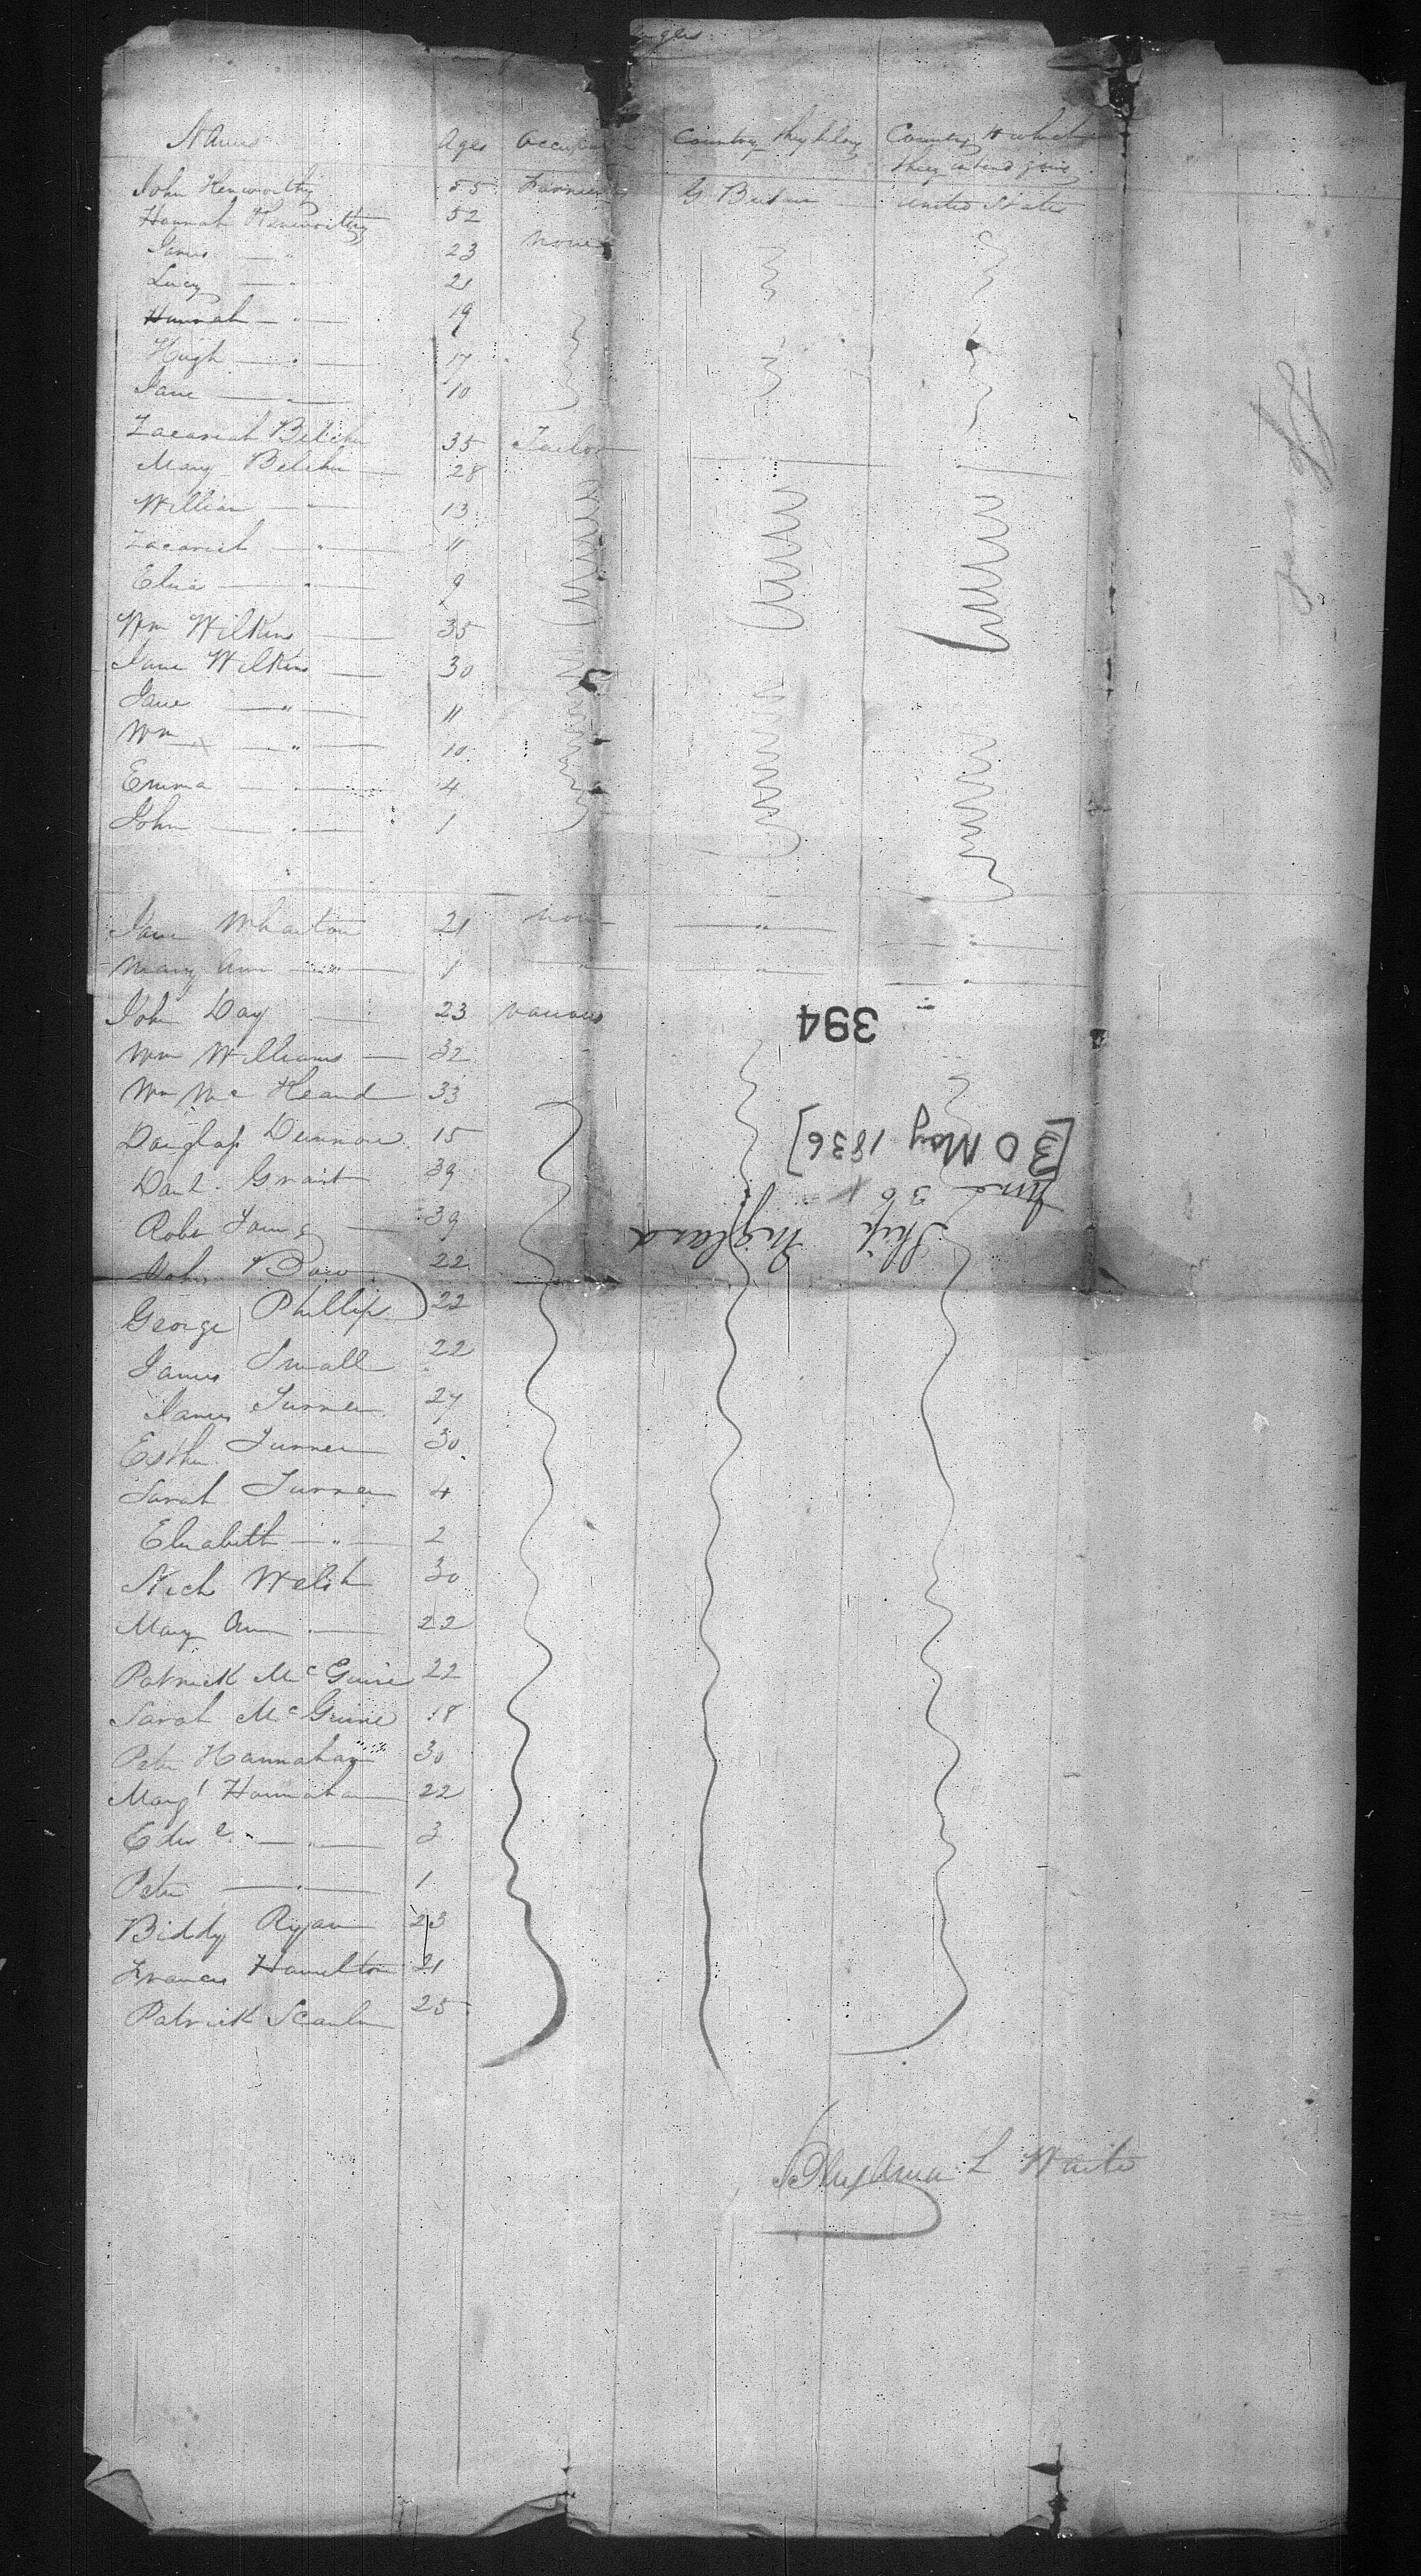 Names Ages Occupation Country they belong Country to which they intend going
John Kenworthy 55 Farmer G Britain United States
Hannah Kenworthy 52
James — " 23 None
Lucy — " 21
Hannah — " — 19
Hugh — " — 17
Jane — " 10
Zacariah Belcher 35 Tailor
Mary Belcher 28
William — " 13
Zacariah — " — 11
Eliza — " — 9
Wm Wilkins — 35
Jane Wilkins — 30
Jane — " — 11
Wm — " — 10
Emma — " — 4
John — " — 1
Jane Wharton 21 none — " — — " —
Mary Ann — " — 1 " — " — "
John Day 23 various
Wm Williams — 32
Wm Mc Heard 33
Douglass 15
Danl. Grant 39
Robt Young — 39
John Bow 22
George Phillips 22
James Small 22
James Turner 27
Esther Turner 30
Sarah Turner 4
Elizabeth — " — 2
Nich Welsh 30
Mary Ann — " — 22
Patrick McGuire 22
Sarah McGuire 18
Peter Hannahan 30
Margt Hannahan 22
Edwd — " — 3
Peter — " — 1
Biddy Ryan 23
Francis Hamilton 21
Patrick Scanlin 25
Benjamin L Waite
Ship England
June 36
[30 May 1836]
394